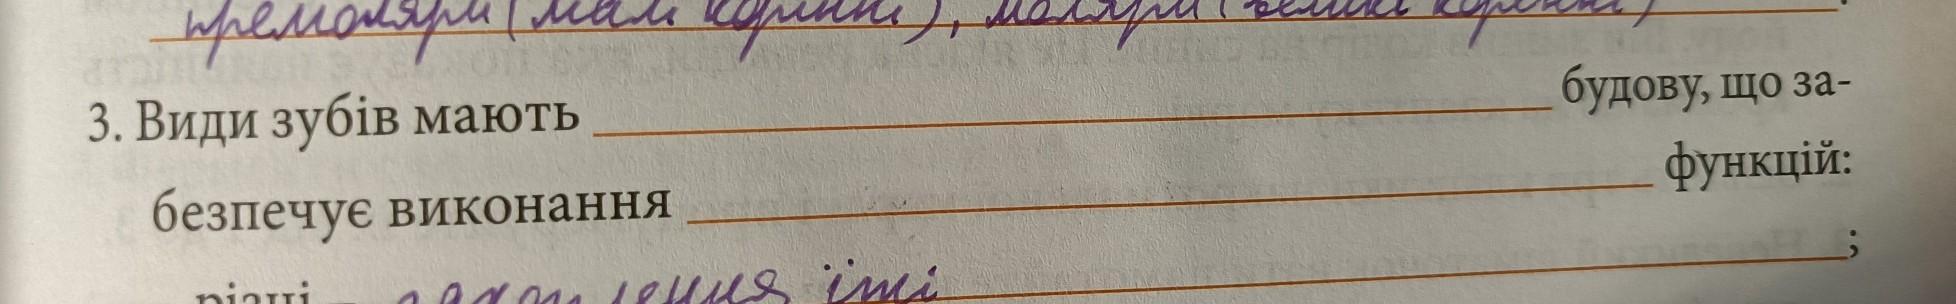 премоляри (малі корінні), моляри (великі корінні).
3. Види зубів мають будову, що за-
безпечує виконання функцій:
;
різці – захоплення їжі